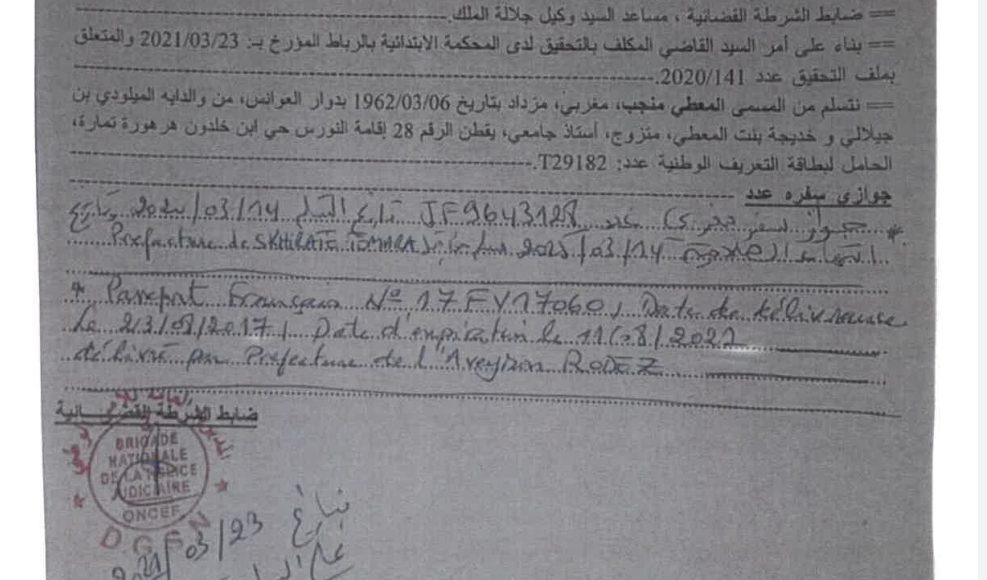 == ضابط الشرطة القضائية ، مساعد السيد وكيل جلالة الملك.
== بناء على أمر السيد القاضي المكلف بالتحقيق لدى المحكمة الابتدائية بالرباط المؤرخ بـ: 2021/03/23 والمتعلق
بملف التحقيق عدد 2020/141.
== نتسلم من المسمى المعطي منجب، مغربي، مزداد بتاريخ 1962/03/06 بدوار العوانس، من والديه الميلودي بن
جيلالي و خديجة بنت المعطي، متزوج، أستاذ جامعي، يقطن الرقم 28 إقامة النورس حي ابن خلدون هرهورة تمارة،
الحامل لبطاقة التعريف الوطنية عدد: T29182.
جوازي سفره عدد
* جواز سفر مغربي عدد JF9643128 تاريخ التسليم 2020/03/14 وتاريخ
انتهاء الصلاحية 2025/03/14 Prefacture de SKHIRATE TEMARA
* Passeport Français N° 17FV17060, Date de délivrance
le 23/08/2017, Date d'expiration le 11/08/2022
délivré par Prefecture de l'Aveyron RODEZ
ضابط الشرطة القضائية
BRIGADE
NATIONALE
DE LA POLICE
JUDICIAIRE
ONCEF
DGSN
2021/03/23